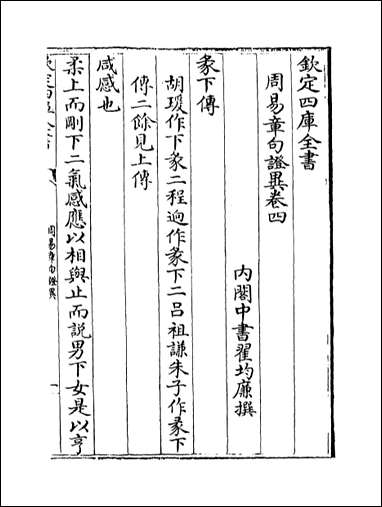 欽定四庫全書
周易章句證異卷四
內閣中書翟均廉撰
彖下傳
胡瑗作下彖二程迥作彖下二呂祖謙朱子作彖下
傳二餘見上傳
咸感也
柔上而剛下二氣感應以相與止而説男下女是以亨
周易章句證異
一